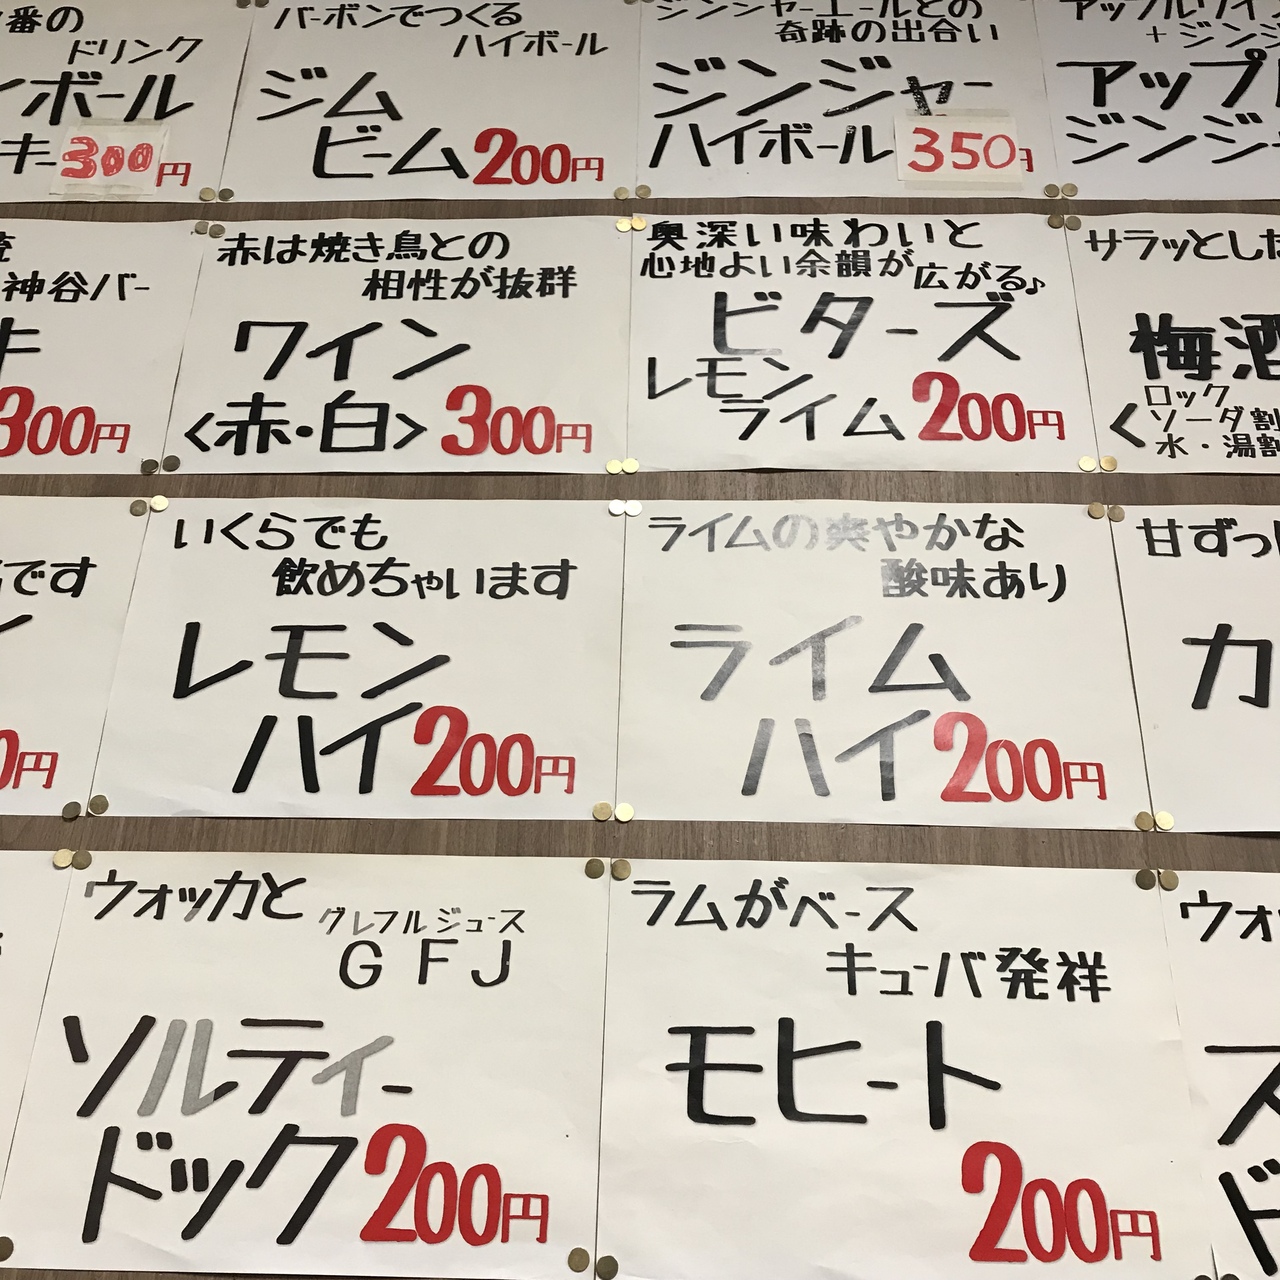 番の
ドリンク
イボール
キー300円
バーボンでつくる
ハイボール
ジム
ビーム200円
ジンジャーエールとの
奇跡の出合い
ジンジャー
ハイボール350円
アップルワイン
+ジンジ
アップル
ジンジャー
神谷バー
キ
300円
赤は焼き鳥との
相性が抜群
ワイン
<赤・白>300円
奥深い味わいと
心地よい余韻が広がる♪
ビターズ
レモン
ライム200円
サラッとした
梅酒
<ロック
ソーダ割
水・湯割
です
0円
いくらでも
飲めちゃいます
レモン
ハイ200円
ライムの爽やかな
酸味あり
ライム
ハイ200円
甘ずっぱ
カ
ウォッカと
グレフルジュース
GFJ
ソルティー
ドック200円
ラムがベース
キューバ発祥
モヒート
200円
ウォ
ス
ド